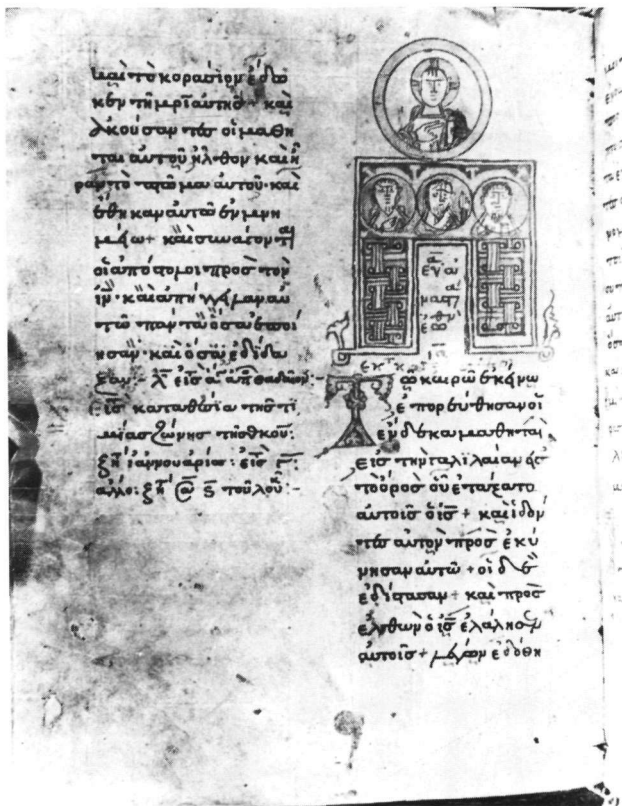 καὶ τὸ κοράσιον ἔδω
κεν τῆ μρὶ αὐτῆσ + καὶ
ἀκούσαντεσ οἱ μαθη
ταὶ αὐτοῦ ἦλθον καὶ ἦ
ραν τὸ πτῶμα αὐτοῦ · καὶ
ἔθηκαν αὐτῶ ἐν μνη
μείω + καὶ συνάγονται
οἱ ἀπόστολοι πρὸσ τὸν
ἰν · καὶ ἀπήγγειλαν αὐ
τῶ πάντα ὅσα ἐποί
ησαν · καὶ ὅσα ἐδίδα
ξαν
εἰσ καταθέσια τῆσ τι
μίασ ζώνησ τῆσ θκου
ἰαννουαρίω
ἄλλο τοῦ λου
εὐα
ματθ
ἐωθι
Τῶ καιρῶ ἐκείνω
ἐπορεύθησαν οἱ
ἕνδεκα μαθηταὶ
εἰσ τὴν γαλιλαίαν εἰσ
τὸ ὄροσ οὗ ἐτάξατο
αὐτοῖσ ὁ ισ + καὶ ἰδόν
τεσ αὐτὸν προσεκύ
νησαν αὐτῶ + οἱ δὲ
ἐδίστασαν + καὶ προσ
ελθὼν ὁ ισ ἐλάλησεν
αὐτοῖσ + λέγων ἐδόθη